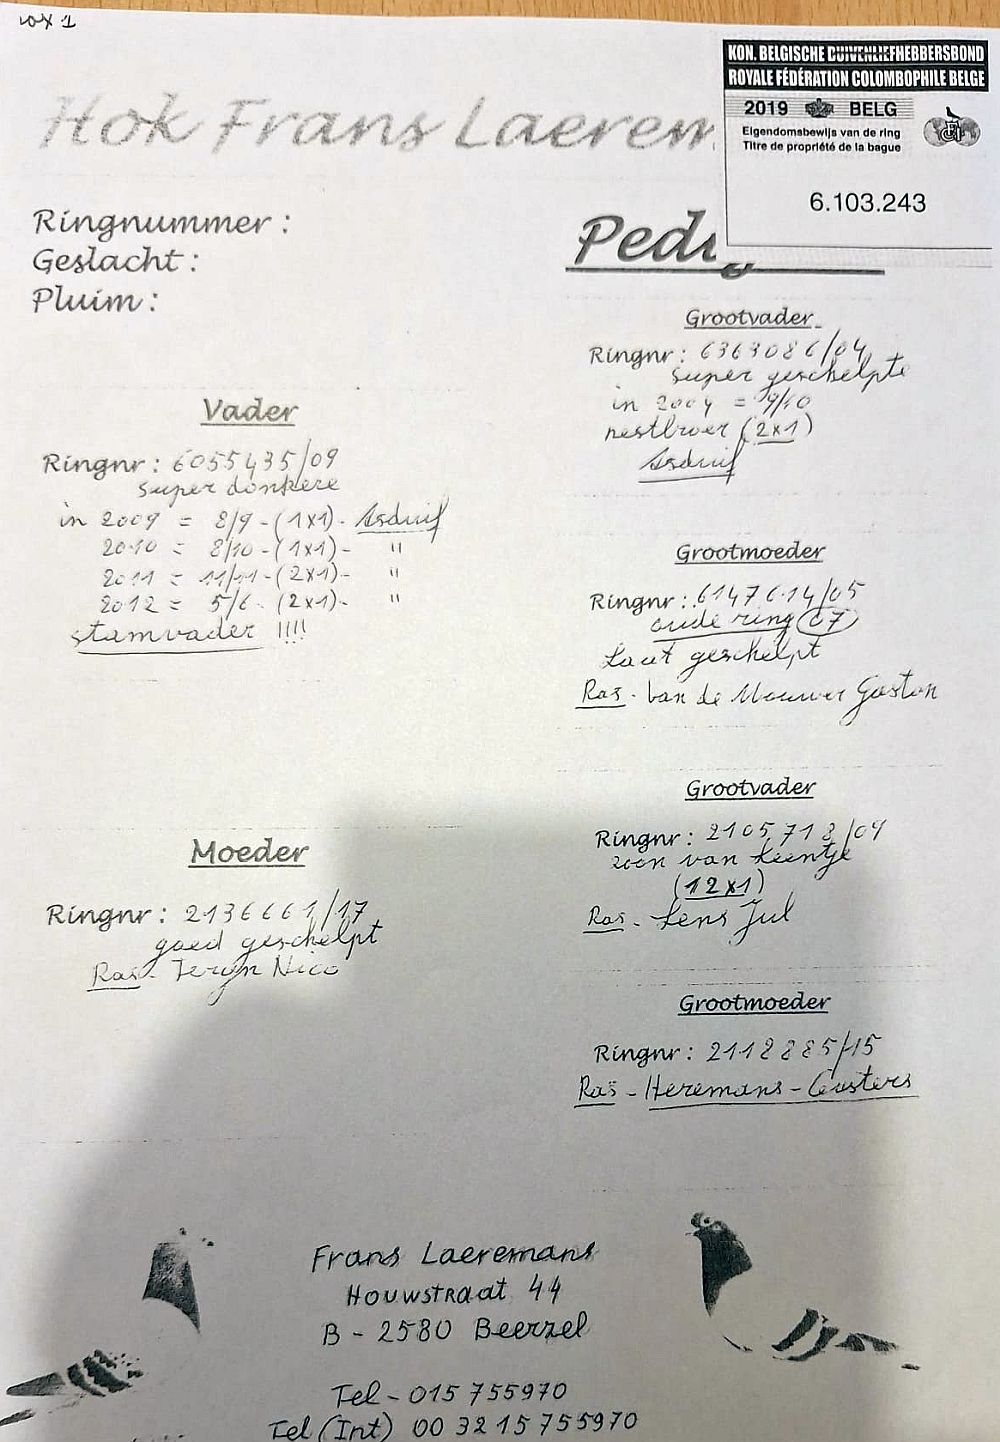 KON. BELGISCHE DUIVENLIEFHEBBERSBOND
ROYALE FÉDÉRATION COLOMBOPHILE BELGE
2019 BELG
Eigendomsbewijs van de ring
Titre de propriété de la bague
6.103.243
Hok Frans Laerem
Ringnummer :
Geslacht :
Pluim :
Vader
Ringnr : 6055435/09
super donkere
in 2009 = 8/9 - (1x1) - Asduif
2010 = 8/10 - (1x1) - "
2011 = 11/11 - (2x1) - "
2012 = 5/6 - (2x1) - "
stamvader !!!!
Moeder
Ringnr : 2136661/17
goed geschelpt
Ras - Teryn Nico
Grootvader
Ringnr : 6363086/04
super geschelpte
in 2004 = 9/10
nestbroer (2x1)
Asduif
Grootmoeder
Ringnr : 6147614/05
oude ring 07
Laat geschelpt
Ras - Van de Mouwer Gaston
Grootvader
Ringnr : 2105718/09
zoon van
(12x1)
Ras - Lens Jul
Grootmoeder
Ringnr : 2118885/15
Ras - Heremans - Ceusters
Frans Laeremans
Houwstraat 44
B - 2580 Beerzel
Tel - 015 755970
Tel (Int) 00 32 15 755970